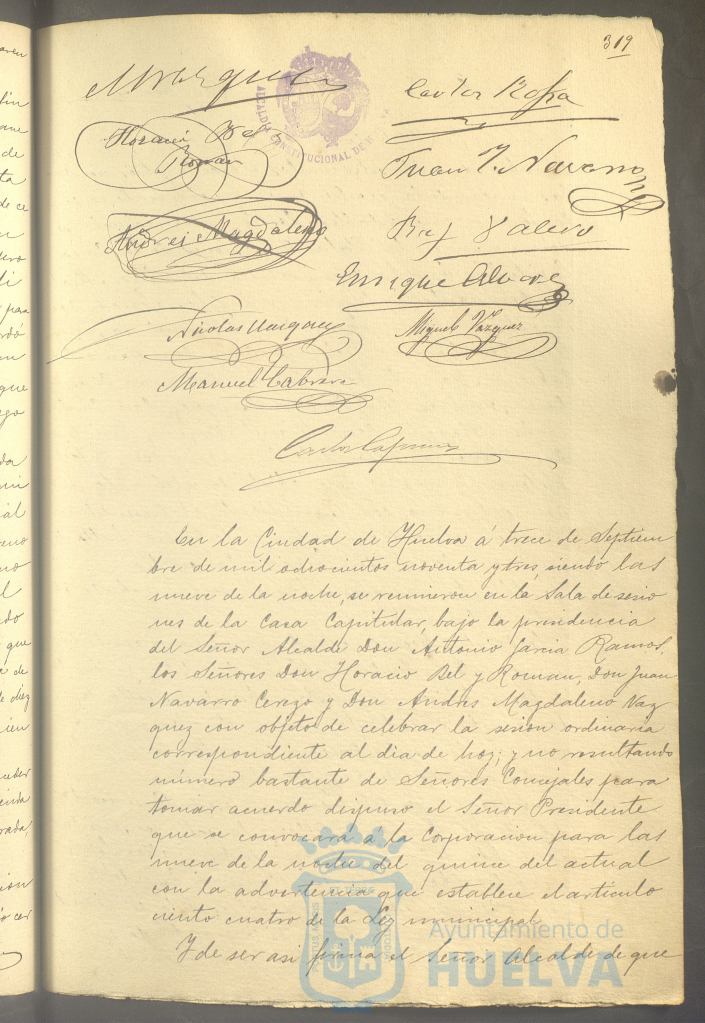 319
Marquez
Horacio Bel y Roman
Juan J. Navarro
Andres Magdaleno
Enrique
Nicolas Marquez
Miguel Vazquez
Manuel Cabrera
En la Ciudad de Huelva á trece de Septiem
bre de mil ochocientos noventa y tres, siendo las
nueve de la noche, se reunieron en la Sala de sesio
nes de la Casa Capitular, bajo la presidencia
del Señor Alcalde Don Antonio Garcia Ramos,
los Señores Don Horacio Bel y Roman, Don Juan
Navarro Cerezo y Don Andres Magdaleno Vaz
quez con objeto de celebrar la sesion ordinaria
correspondiente al dia de hoy; y no resultando
número bastante de Señores Concejales para
tomar acuerdo dispuso el Señor Presidente
que se convocará a la Corporacion para las
nueve de la noche del quince del actual
con la advertencia que establece el articulo
ciento cuatro de la Ley municipal.
Y de ser asi firma el Señor Alcalde de que
Ayuntamiento de
HUELVA